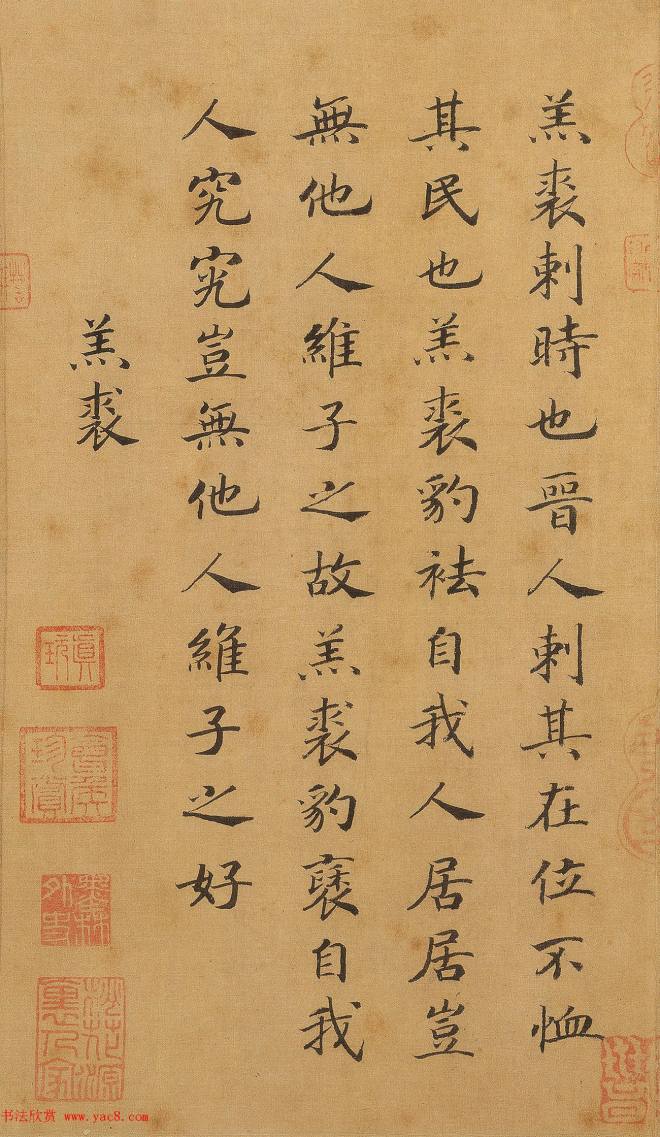 羔裘刺時也晉人刺其在位不恤
其民也羔裘豹袪自我人居居豈
無他人維子之故羔裘豹褎自我
人究究豈無他人維子之好
羔裘
书法欣赏 www.yac8.com